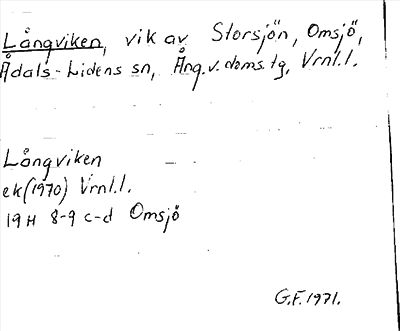 Långviken, vik av Storsjön, Omsjö,
Ådals-Lidens sn, Ång.v.doms.tg, Vrnl.l.
Långviken
ek(1970) Vrnl.l.
19H 8-9 c-d Omsjö
G.F. 1971.